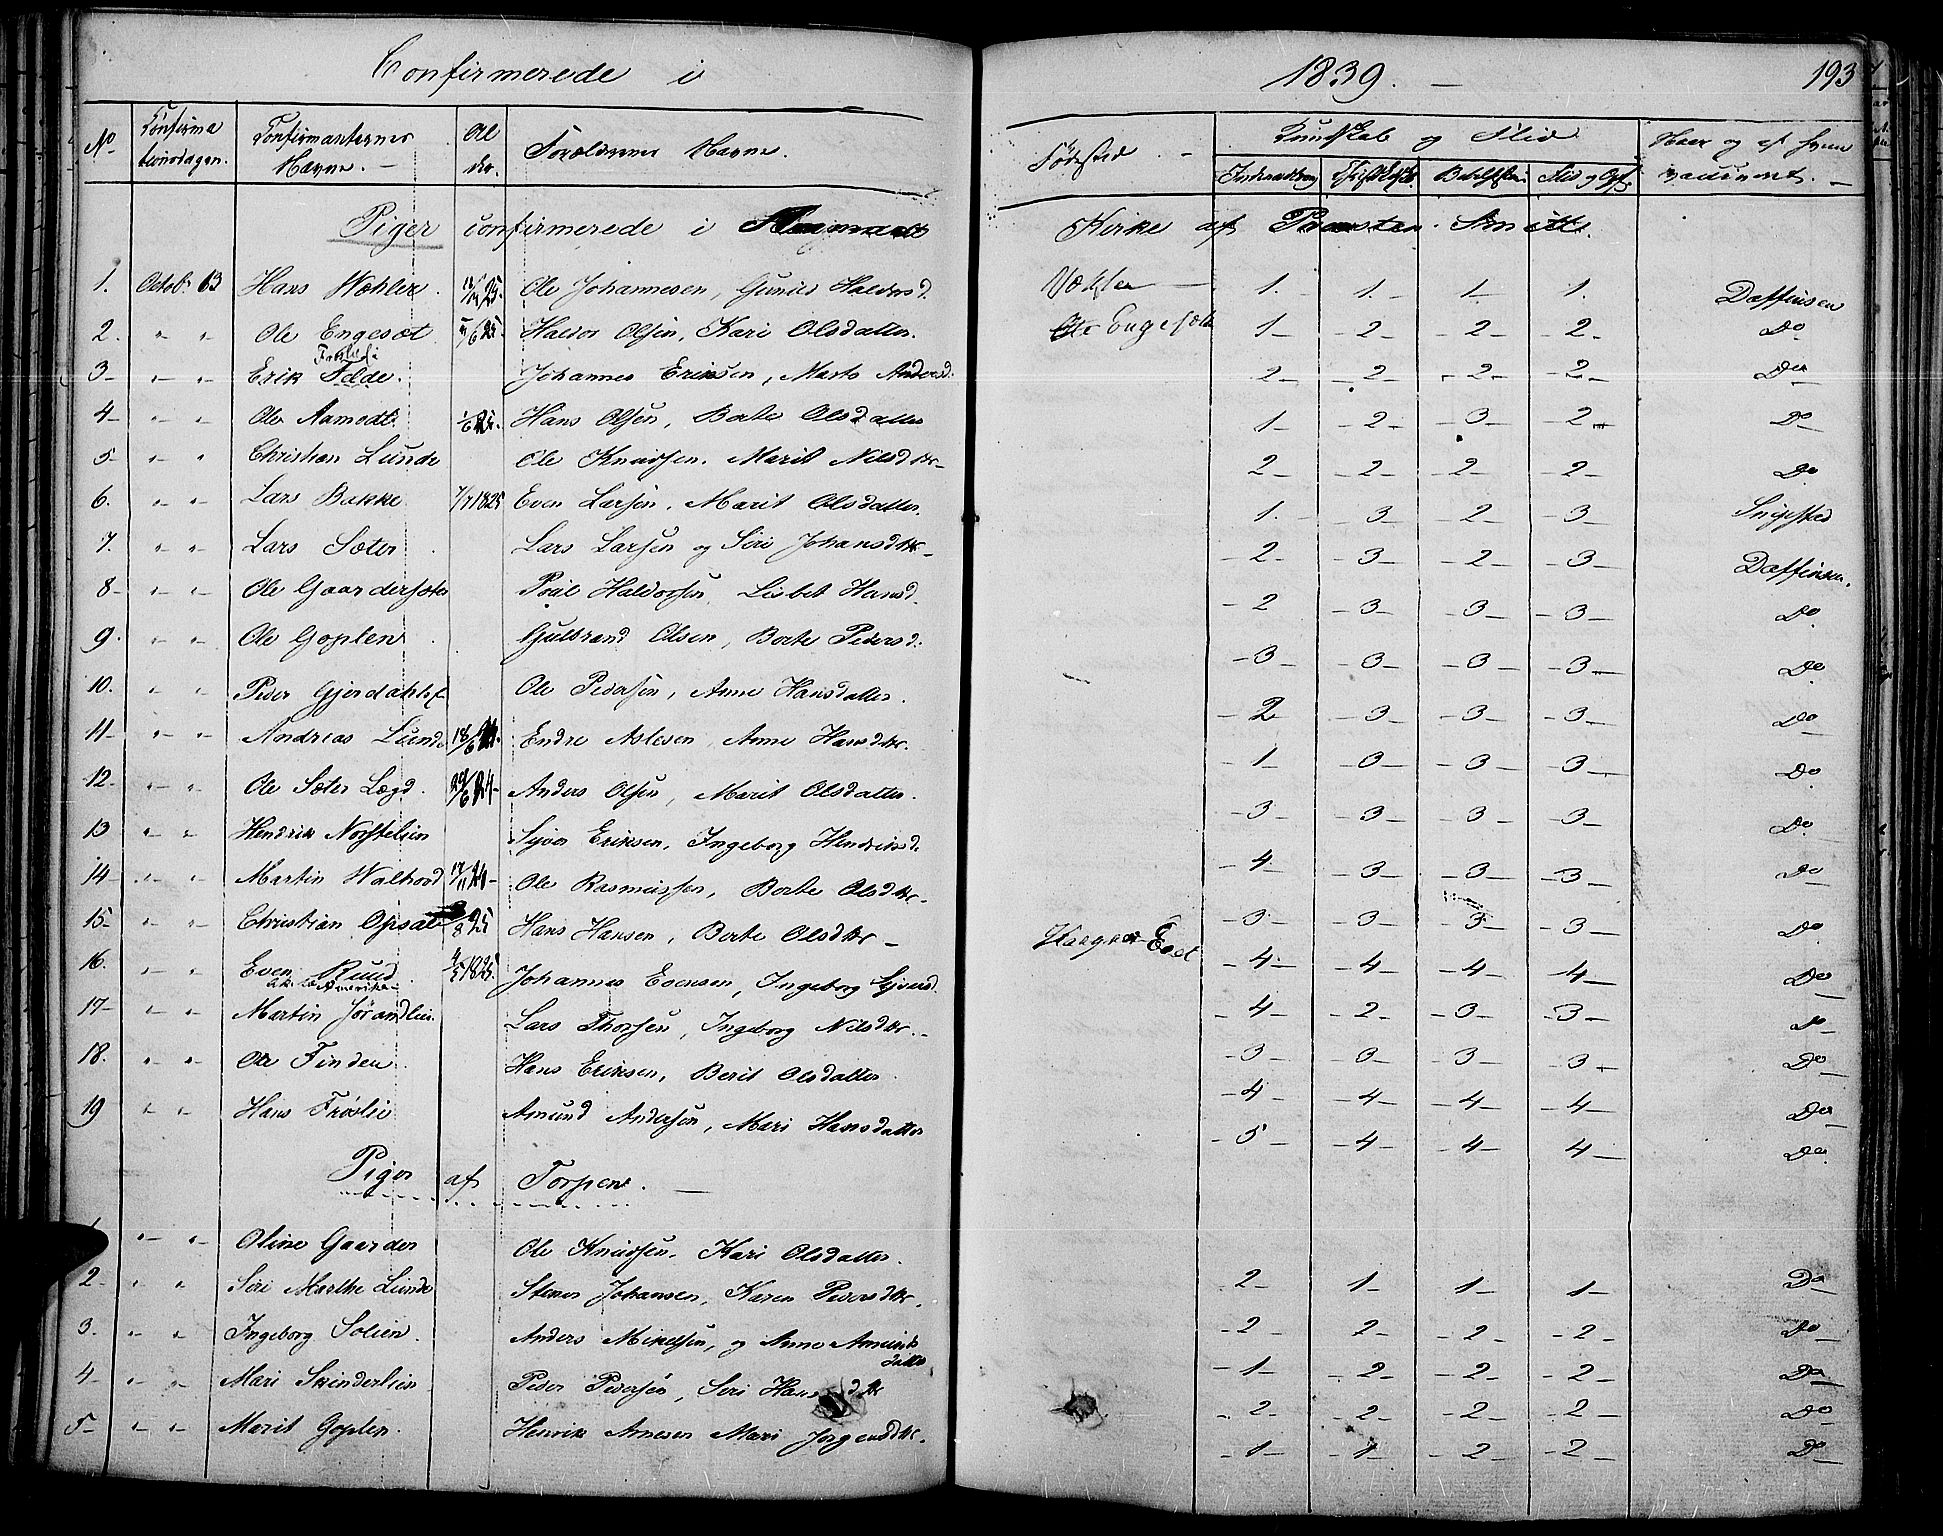 Confirmerede i 1839. — 193
No Confirmationsdagen. Confirmanternes Navne. — Alder. Forældrenes Navne. Fødested. — Kundskab og Flid Naar og af hvem vaccineret. —
Indenadlæsn Christdsk. Flid og Opf.
Piger confirmerede i Kirke af
1. Octob: 13 Hans Wæhler. 25. Ole Johannesen, Gunild Haldorsd. — 1. 1. 1. 1. Daffinsen
2. " " Ole Engesæt 25. Haldor Olsen, Kari Olsdatter. Engesæth 1 2 2 2 Do
3 " " Erik Johannes Eriksen, Marte Andersd. 2 2 2 2 Do
4 " " Ole Aamodt. Hans Olsen, Berte Olsdatter 1 2 3 2 Do
5 " " Christian Lunde Ole Knudsen. Marit Nilsdtr 2 2 2 2 Do
6. " " Lars Bakke 7/7 1825 Even Larsen, Marit Olsdatter. 1. 3 2 3
7. " " Lars Sæter Lars Larsen og Siri Johansdtr 2 3 2 3 Daffinsen.
8 " " Ole Gaardersæter Poul Haldorsen, Lisbet Hansd. 2 3 3 3 Do
9. " " Ole Goplen Gulbrand Olsen, Berte Pedersd. 3 3 3 3 Do
10. " " Peder Ole Pedersen, Anne Hansdatter. 2 3 3 3 Do
11 " " Andreas Lunde 18/6 24. Endre Aslesen, Anne Hansdtr. 1 3 3 3 Do
12 " " Ole Sæter Lægd. 29/6 24 Anders Olsen, Marit Olsdatter. 3 3 3 3 Do
13 " " Hendrik Nørstelien Syver Eriksen, Ingeborg Hendriksd. 4 3 3 3 Do
14 " " Martin Walhovd Ole Rasmussen, Berte Olsdtr. 3 3 3 3 Do
15 " " Christian Opsal 25 Hans Hansen, Berte Olsdtr — 4 4 4 4 Do
16. " " Even Ruud Amerika 4/5 1825. Johannes Evensen, Ingeborg 4 2 3 3 Do
17 " " Martin Jørandlien Lars Thorsen, Ingeborg Nilsdtr. 3 3 3 3 Do
18. " " Ole Finden Hans Eriksen, Berit Olsdatter 4 4 4 4 Do
19 " " Hans Frøslie Amund Andersen, Mari Hansdatter 5 4 4 4 Do
Piger af Torpen. —
" " Oline Gaarder Ole Knudsen. Kari Olsdatter. 2 1 1 1 Do
2 " " Siri Marthe Lunde Stener Johansen, Karen Pedersdtr. 2 2 2 2 Do
3. " " Ingeborg Solien. Anders Mikelsen, og Anne Amundsdatter 1 2 2 2 Do
4 " " Mari Skinderlien Peder Pedersen, Siri Hansdtr 2 2 2 2 Do
5 " " Marit Goplen. Henrik Arnesen Mari Jørgensdtr. 1 1 2 2 Do